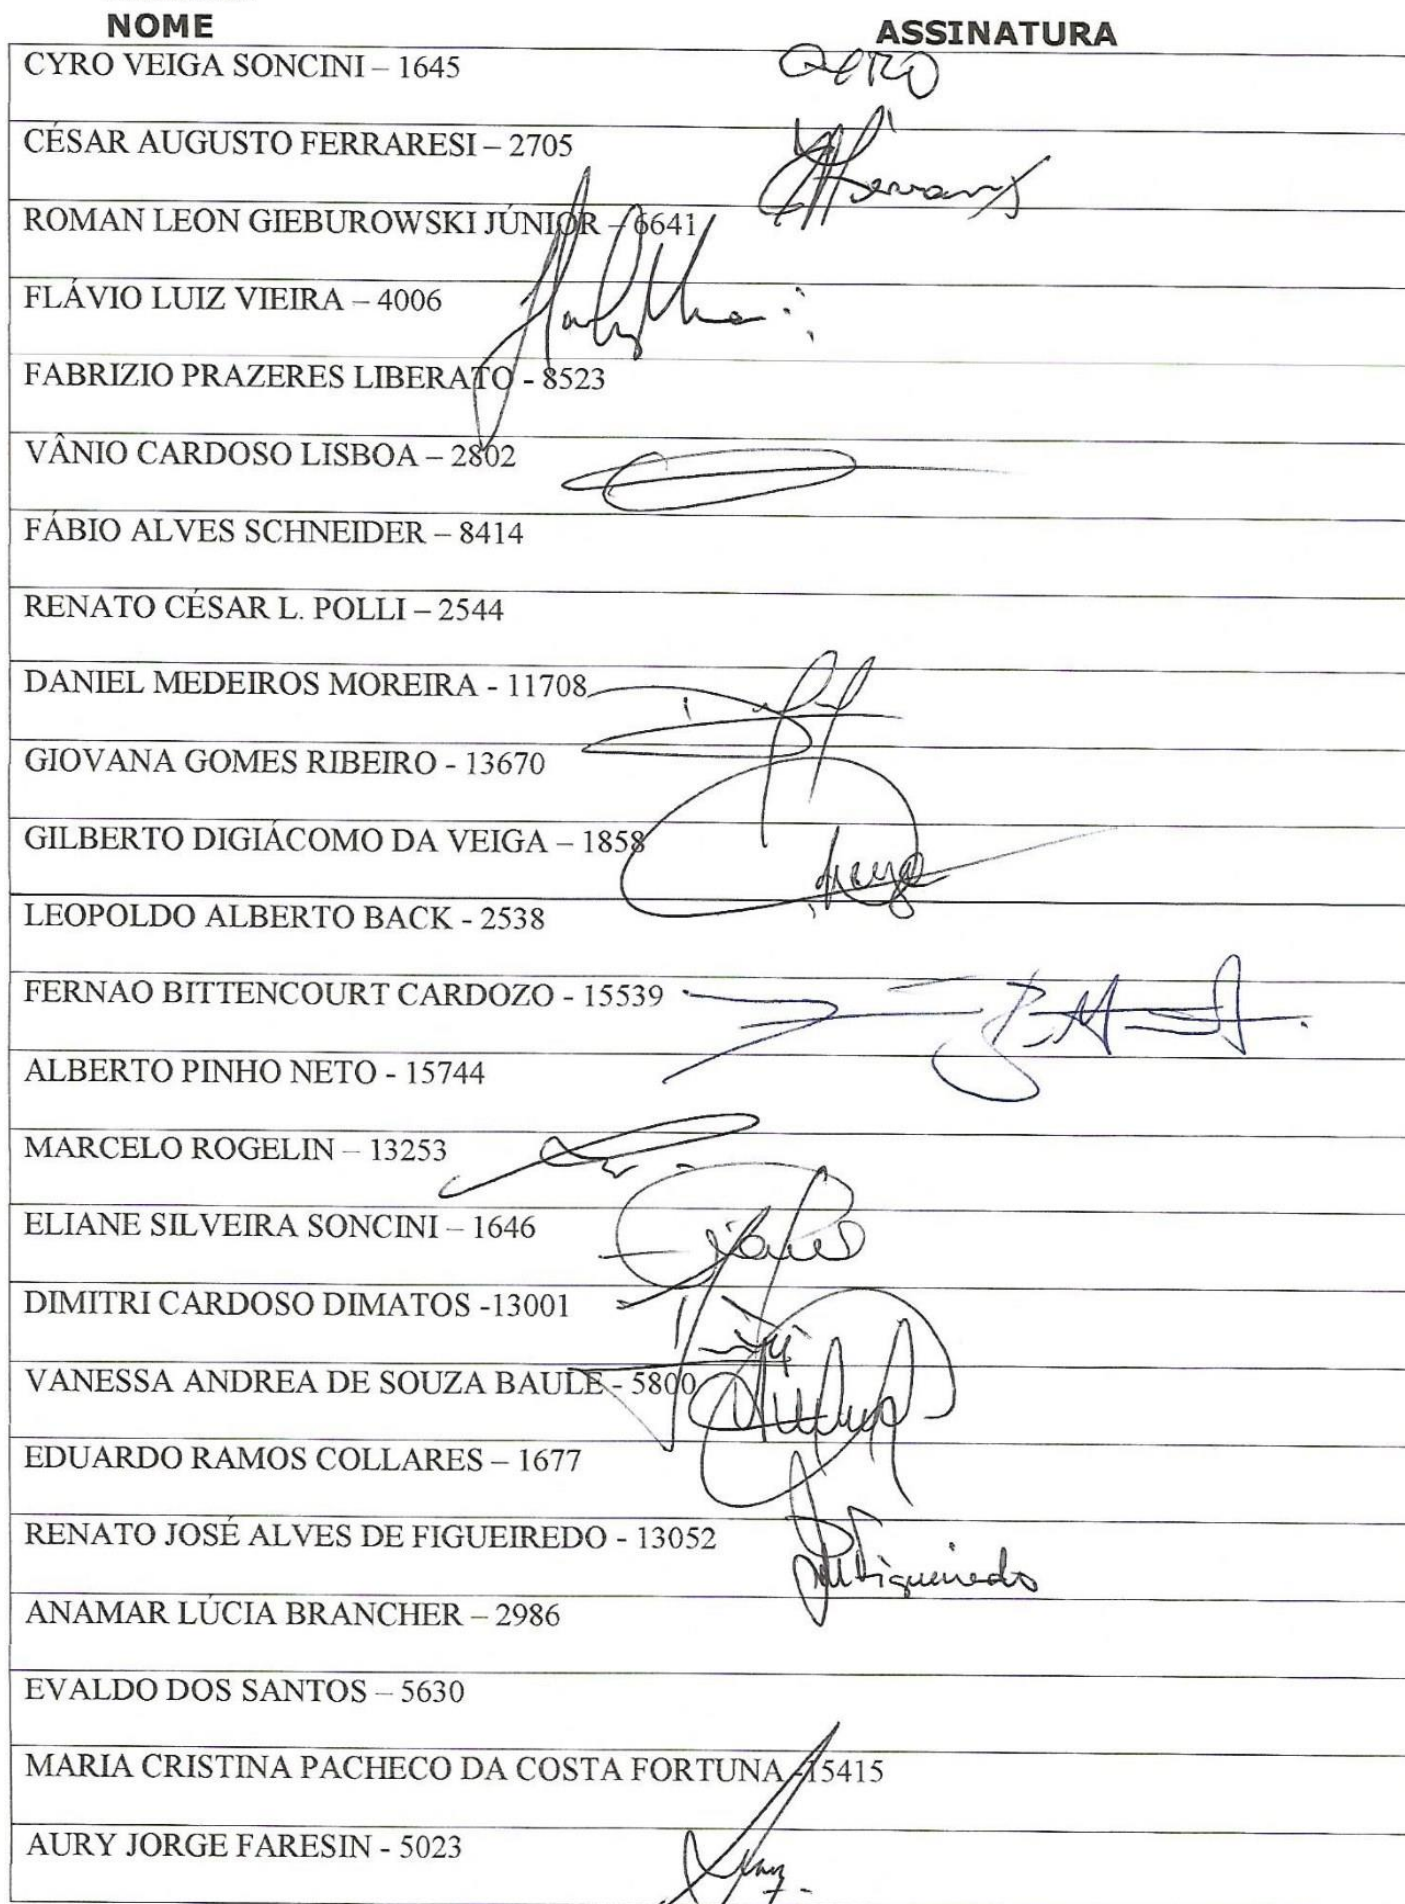 NOME ASSINATURA
CYRO VEIGA SONCINI – 1645
CÉSAR AUGUSTO FERRARESI – 2705
ROMAN LEON GIEBUROWSKI JÚNIOR – 6641
FLÁVIO LUIZ VIEIRA – 4006
FABRIZIO PRAZERES LIBERATO - 8523
VÂNIO CARDOSO LISBOA – 2802
FÁBIO ALVES SCHNEIDER – 8414
RENATO CÉSAR L. POLLI – 2544
DANIEL MEDEIROS MOREIRA - 11708
GIOVANA GOMES RIBEIRO - 13670
GILBERTO DIGIÁCOMO DA VEIGA – 1858
LEOPOLDO ALBERTO BACK - 2538
FERNAO BITTENCOURT CARDOZO - 15539
ALBERTO PINHO NETO - 15744
MARCELO ROGELIN – 13253
ELIANE SILVEIRA SONCINI – 1646
DIMITRI CARDOSO DIMATOS -13001
VANESSA ANDREA DE SOUZA BAULE - 5800
EDUARDO RAMOS COLLARES – 1677
RENATO JOSÉ ALVES DE FIGUEIREDO - 13052
ANAMAR LÚCIA BRANCHER – 2986
EVALDO DOS SANTOS – 5630
MARIA CRISTINA PACHECO DA COSTA FORTUNA -15415
AURY JORGE FARESIN - 5023